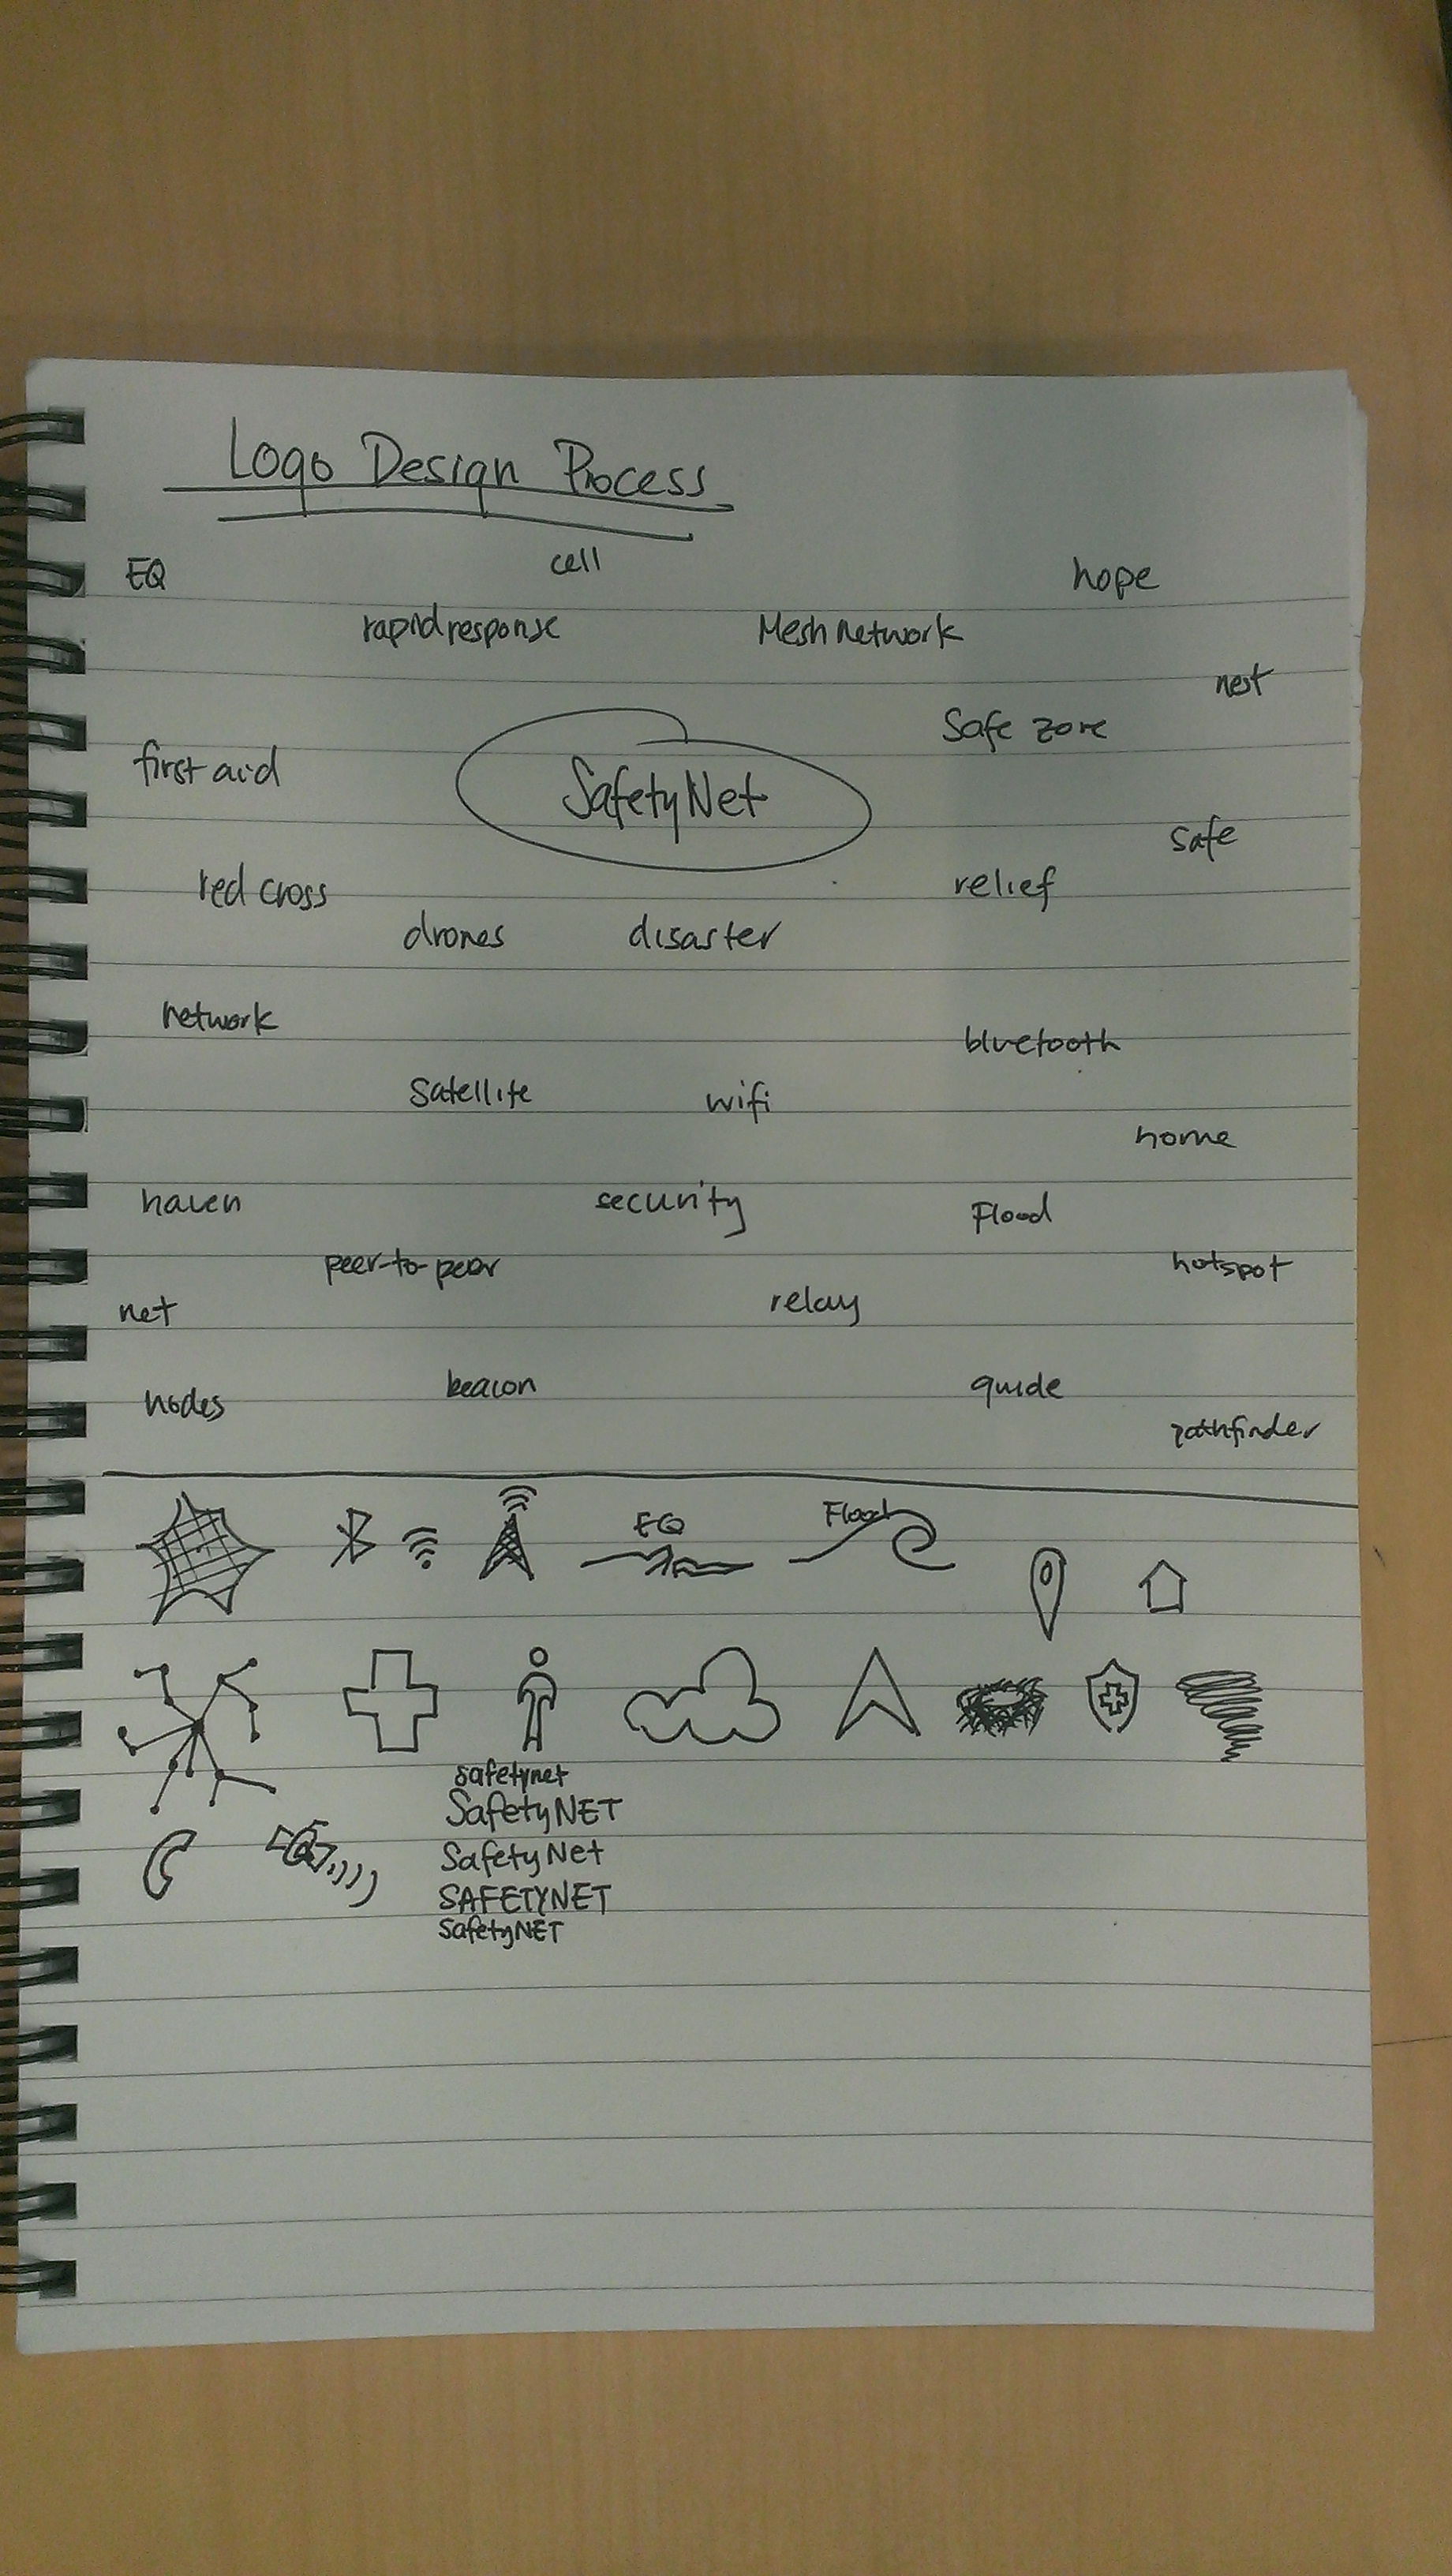 Logo Design Process
EQ
cell
hope
rapid response
Mesh network
nest
Safe zone
first aid
SafetyNet
safe
red cross
relief
drones
disaster
network
bluetooth
Satellite
wifi
home
haven
security
Flood
peer-to-peer
hotspot
net
relay
nodes
beacon
guide
pathfinder
EQ
Flood
safetynet
SafetyNET
SafetyNet
SAFETYNET
safetyNET